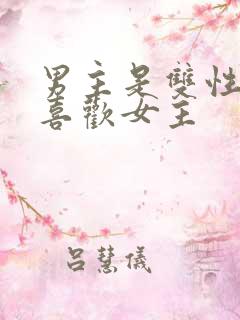 男主是雙性
喜歡女主
呂慧儀